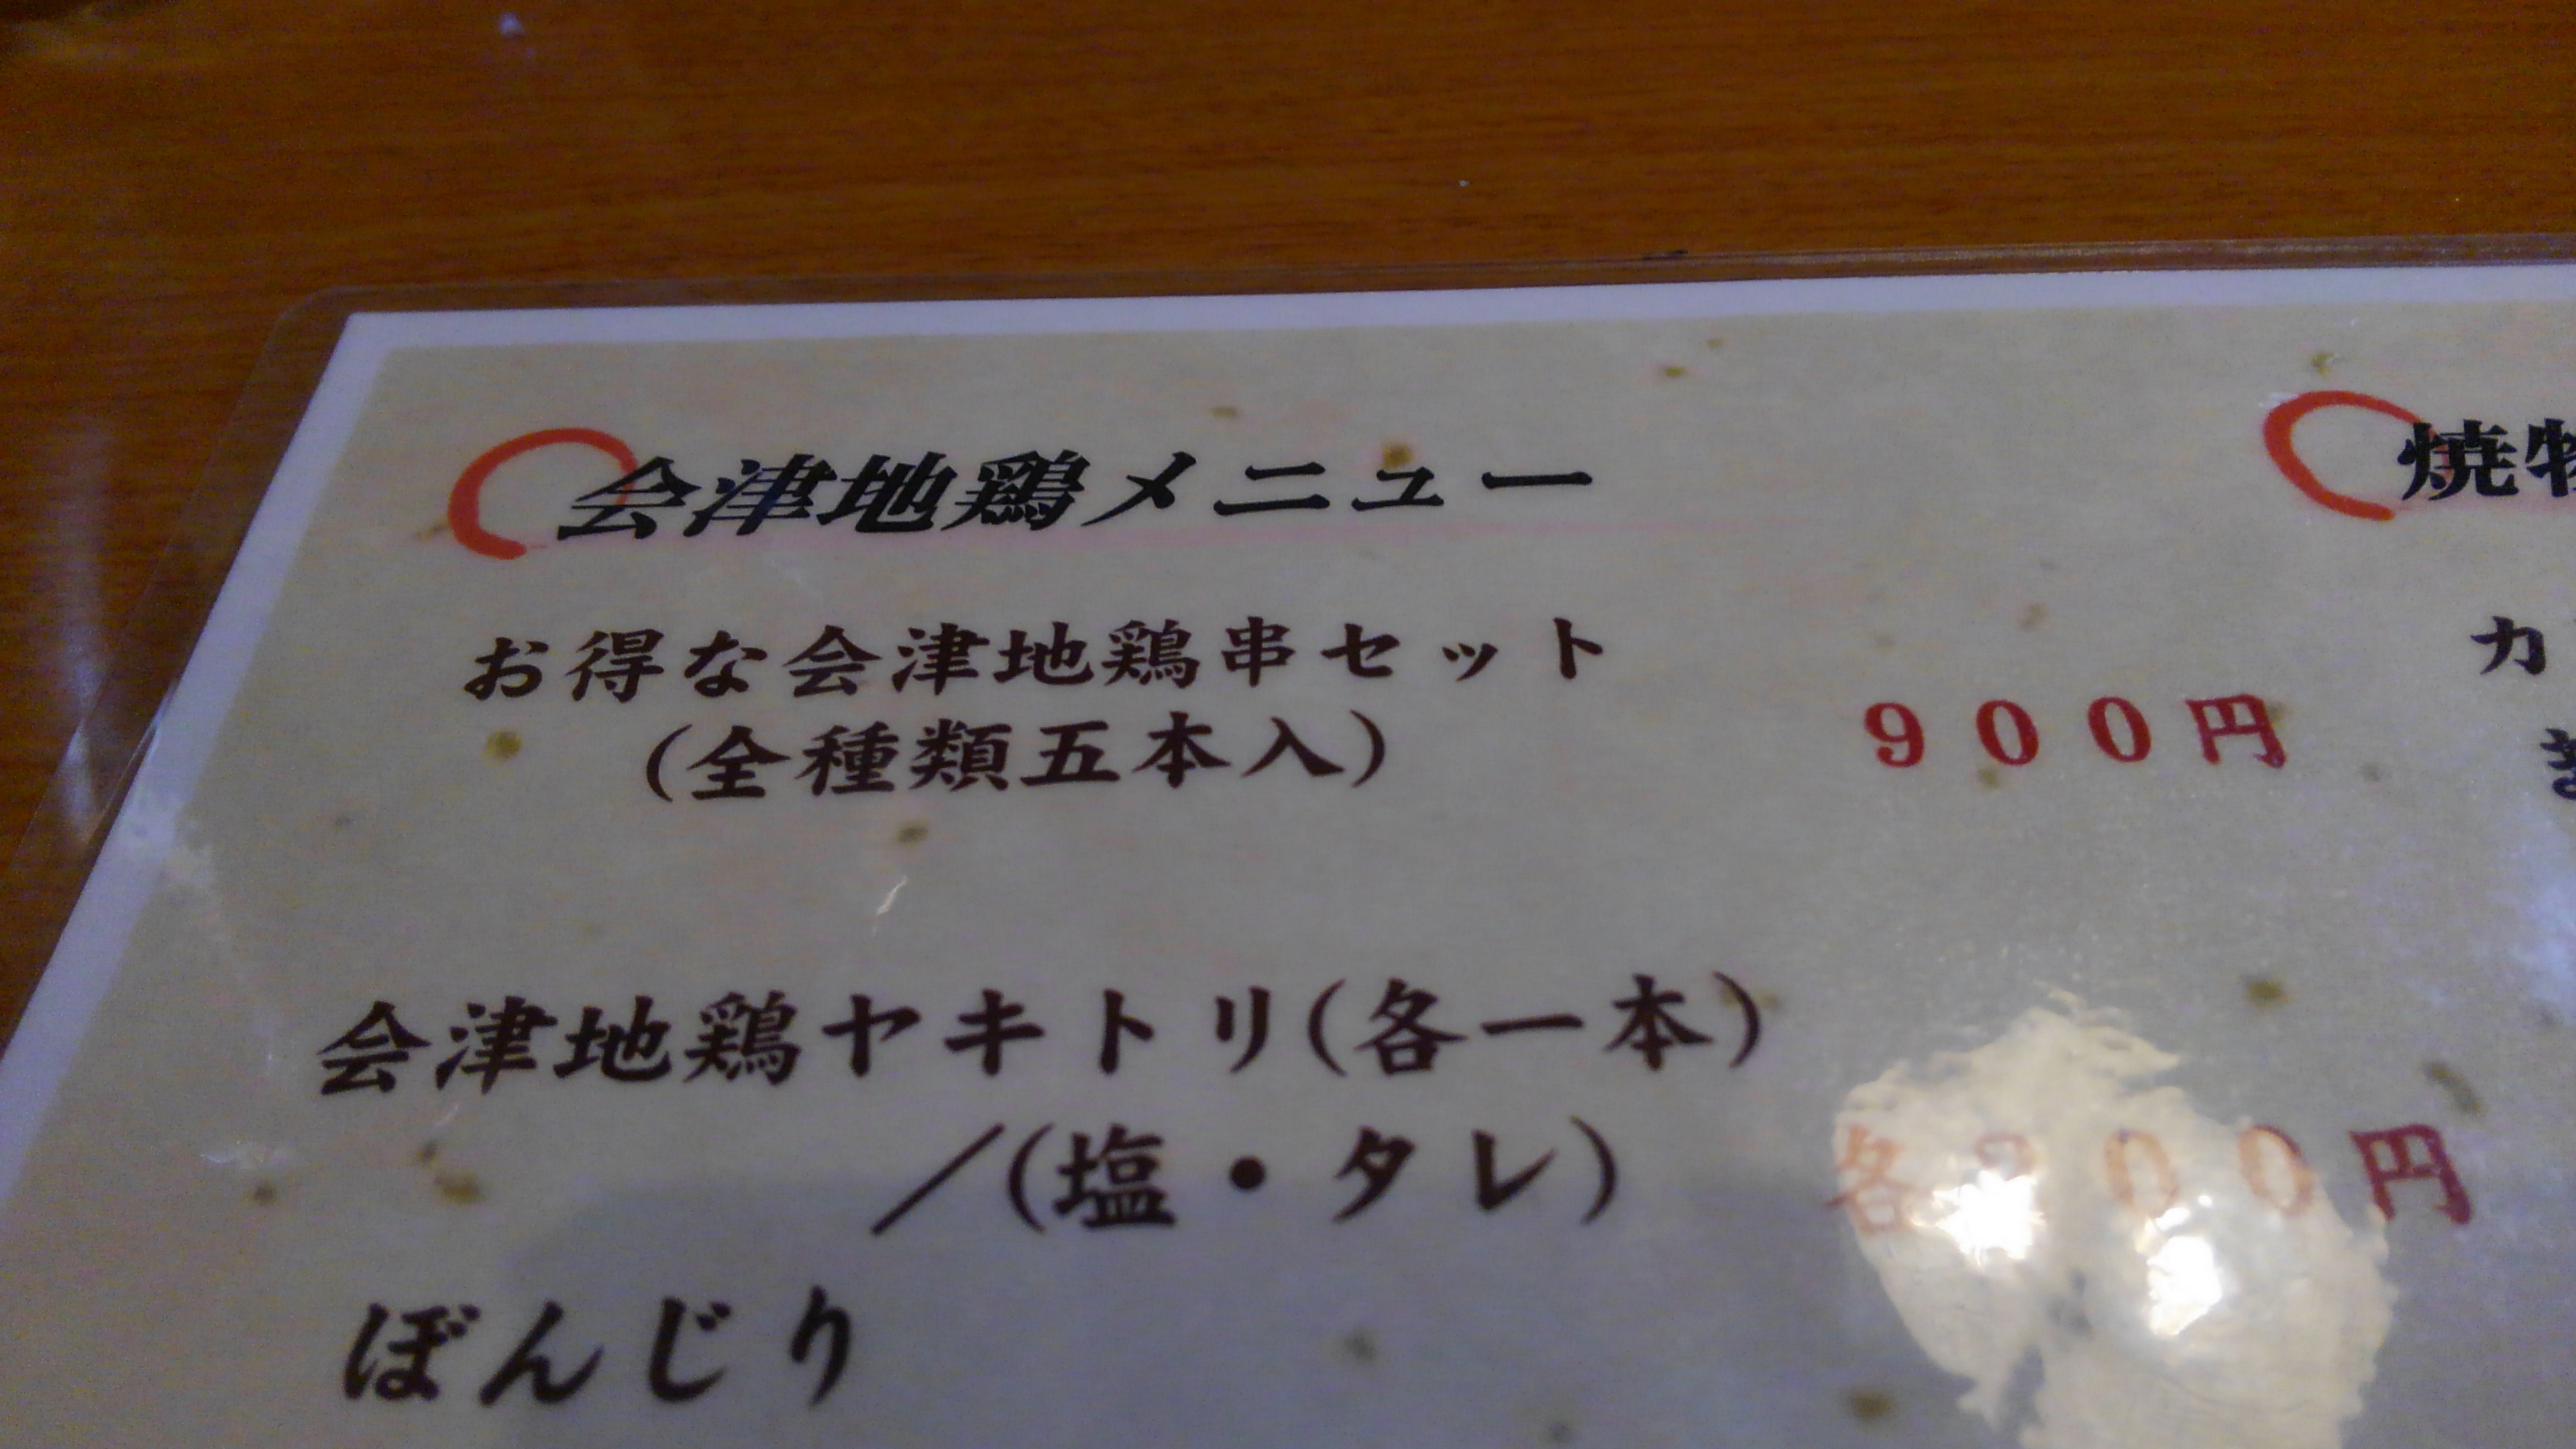 会津地鶏メニュー
お得な会津地鶏串セット
(全種類五本入)
900円
会津地鶏ヤキトリ(各一本)
/(塩・タレ)
各200円
ぼんじり
焼物
カ